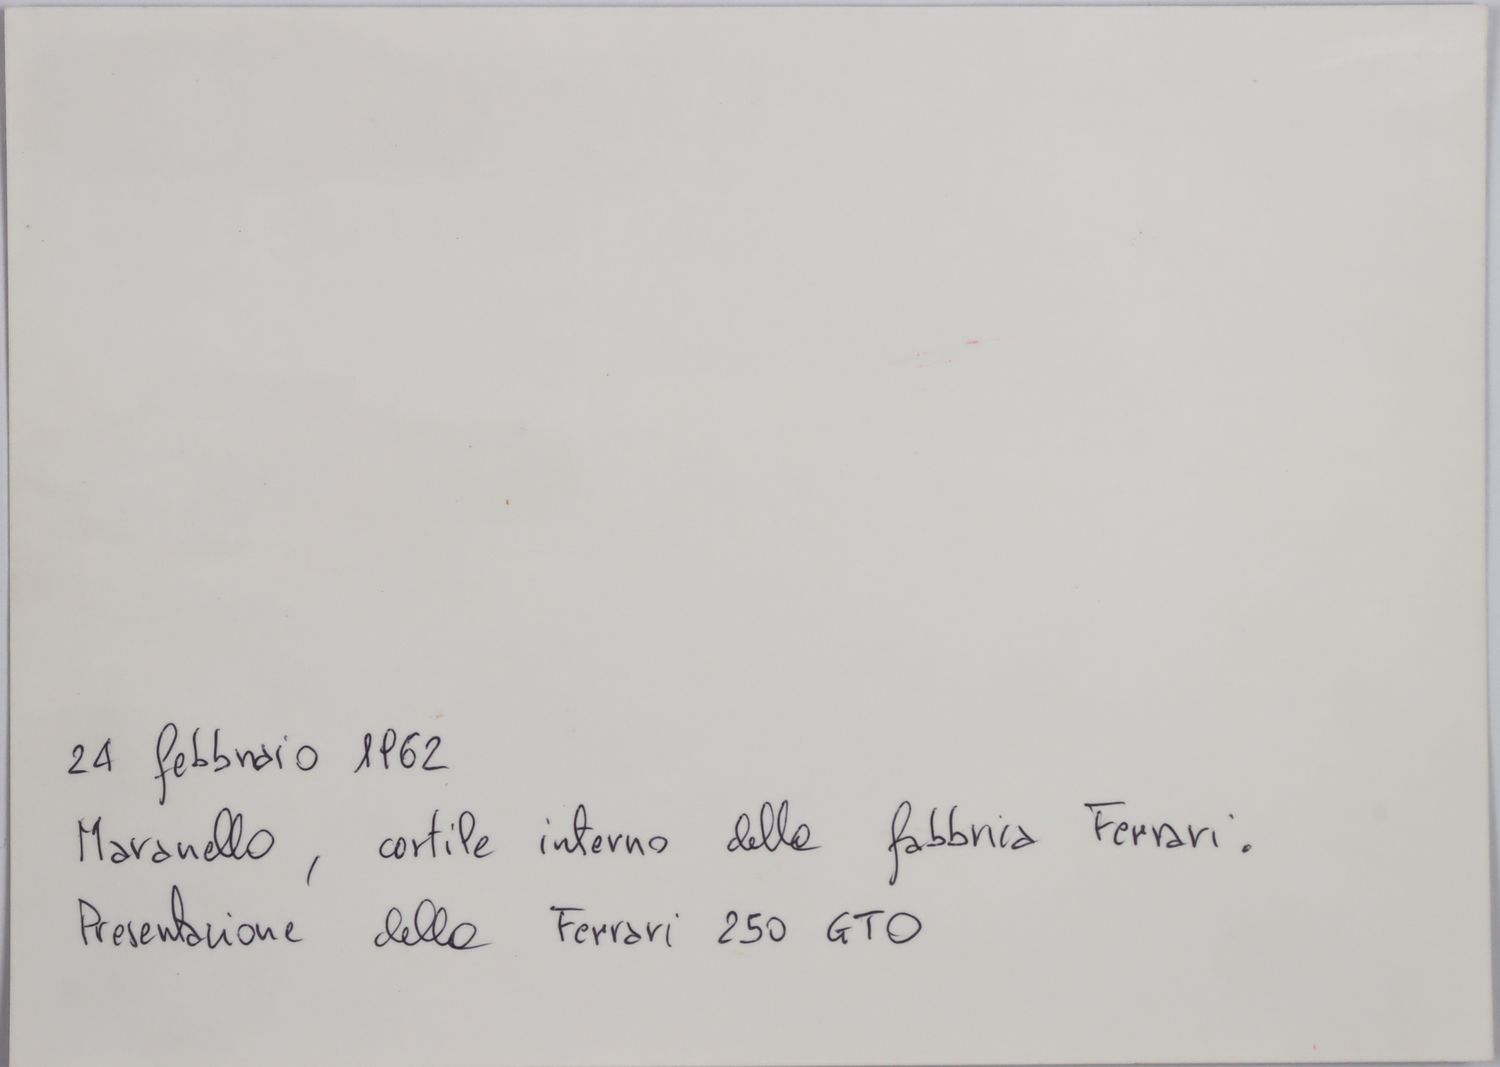 24 febbraio 1962
Maranello, cortile interno della fabbrica Ferrari.
Presentazione della Ferrari 250 GTO